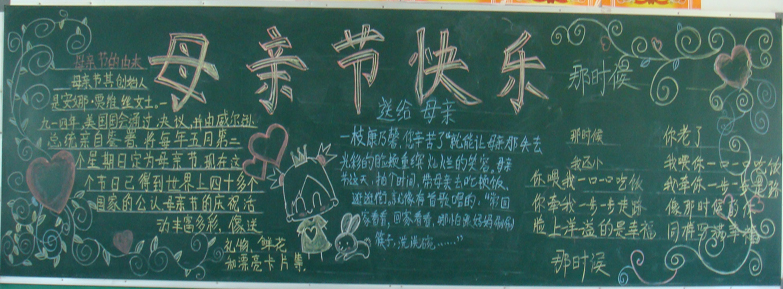 母亲节快乐
母亲节的由来
母亲节其创始人
是安娜·
一九一四年,美国国会通过决议,并由威尔逊
总统亲自签署,将每年五月第二
个星期日定为母亲节,现在这
个节日已得到世界上四十多个
国家的公认,母亲节的庆祝活
动丰富多彩,像送
礼物,鲜花
和漂亮卡片等.
送给母亲
一枝康乃馨,你辛苦了"就能让母亲那失去
光彩的脸
节这天,抽个时间,带母亲去吃顿饭、
逛逛街,就像有首歌唱的,"常回
家看看,回家看看,哪怕
筷子,洗洗碗……"
那时候
那时候
我还小
你喂我一口一口吃饭
你牵我一步一步走路
脸上洋溢的是幸福
那时候
你老了
我喂你一口一口吃
我牵你一步一步走
像那时候
同样写满幸福